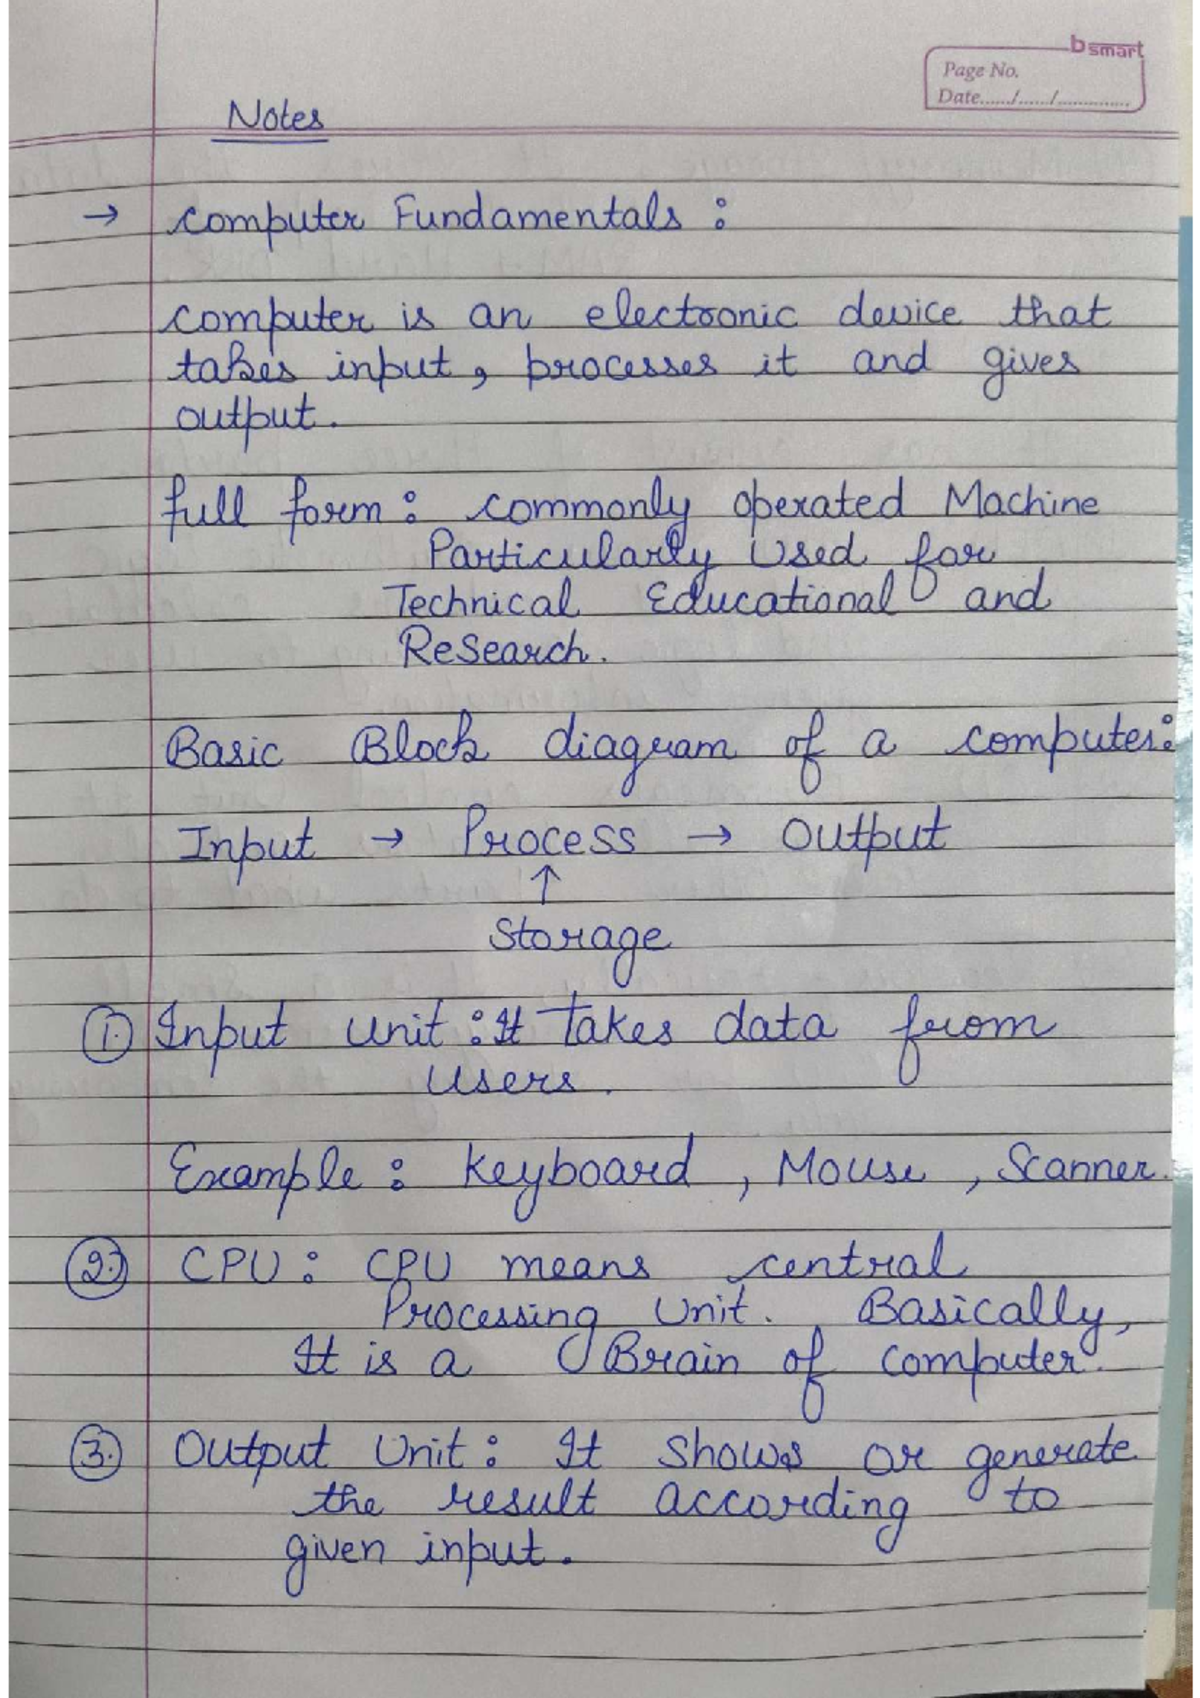 bsmart
Page No.
Date....../....../..............
Notes
→ Computer Fundamentals :
Computer is an electronic device that
takes input, processes it and gives
output.
full form : Commonly Operated Machine
Particularly Used for
Technical Educational and
Research.
Basic Block diagram of a computer:
Input → Process → Output
↑
Storage
1. Input Unit : It Takes data from
Users.
Example : Keyboard, Mouse, Scanner.
2. CPU : CPU means central
Processing Unit. Basically,
It is a Brain of computer.
3. Output Unit : It Shows or generate
the result according to
given input.